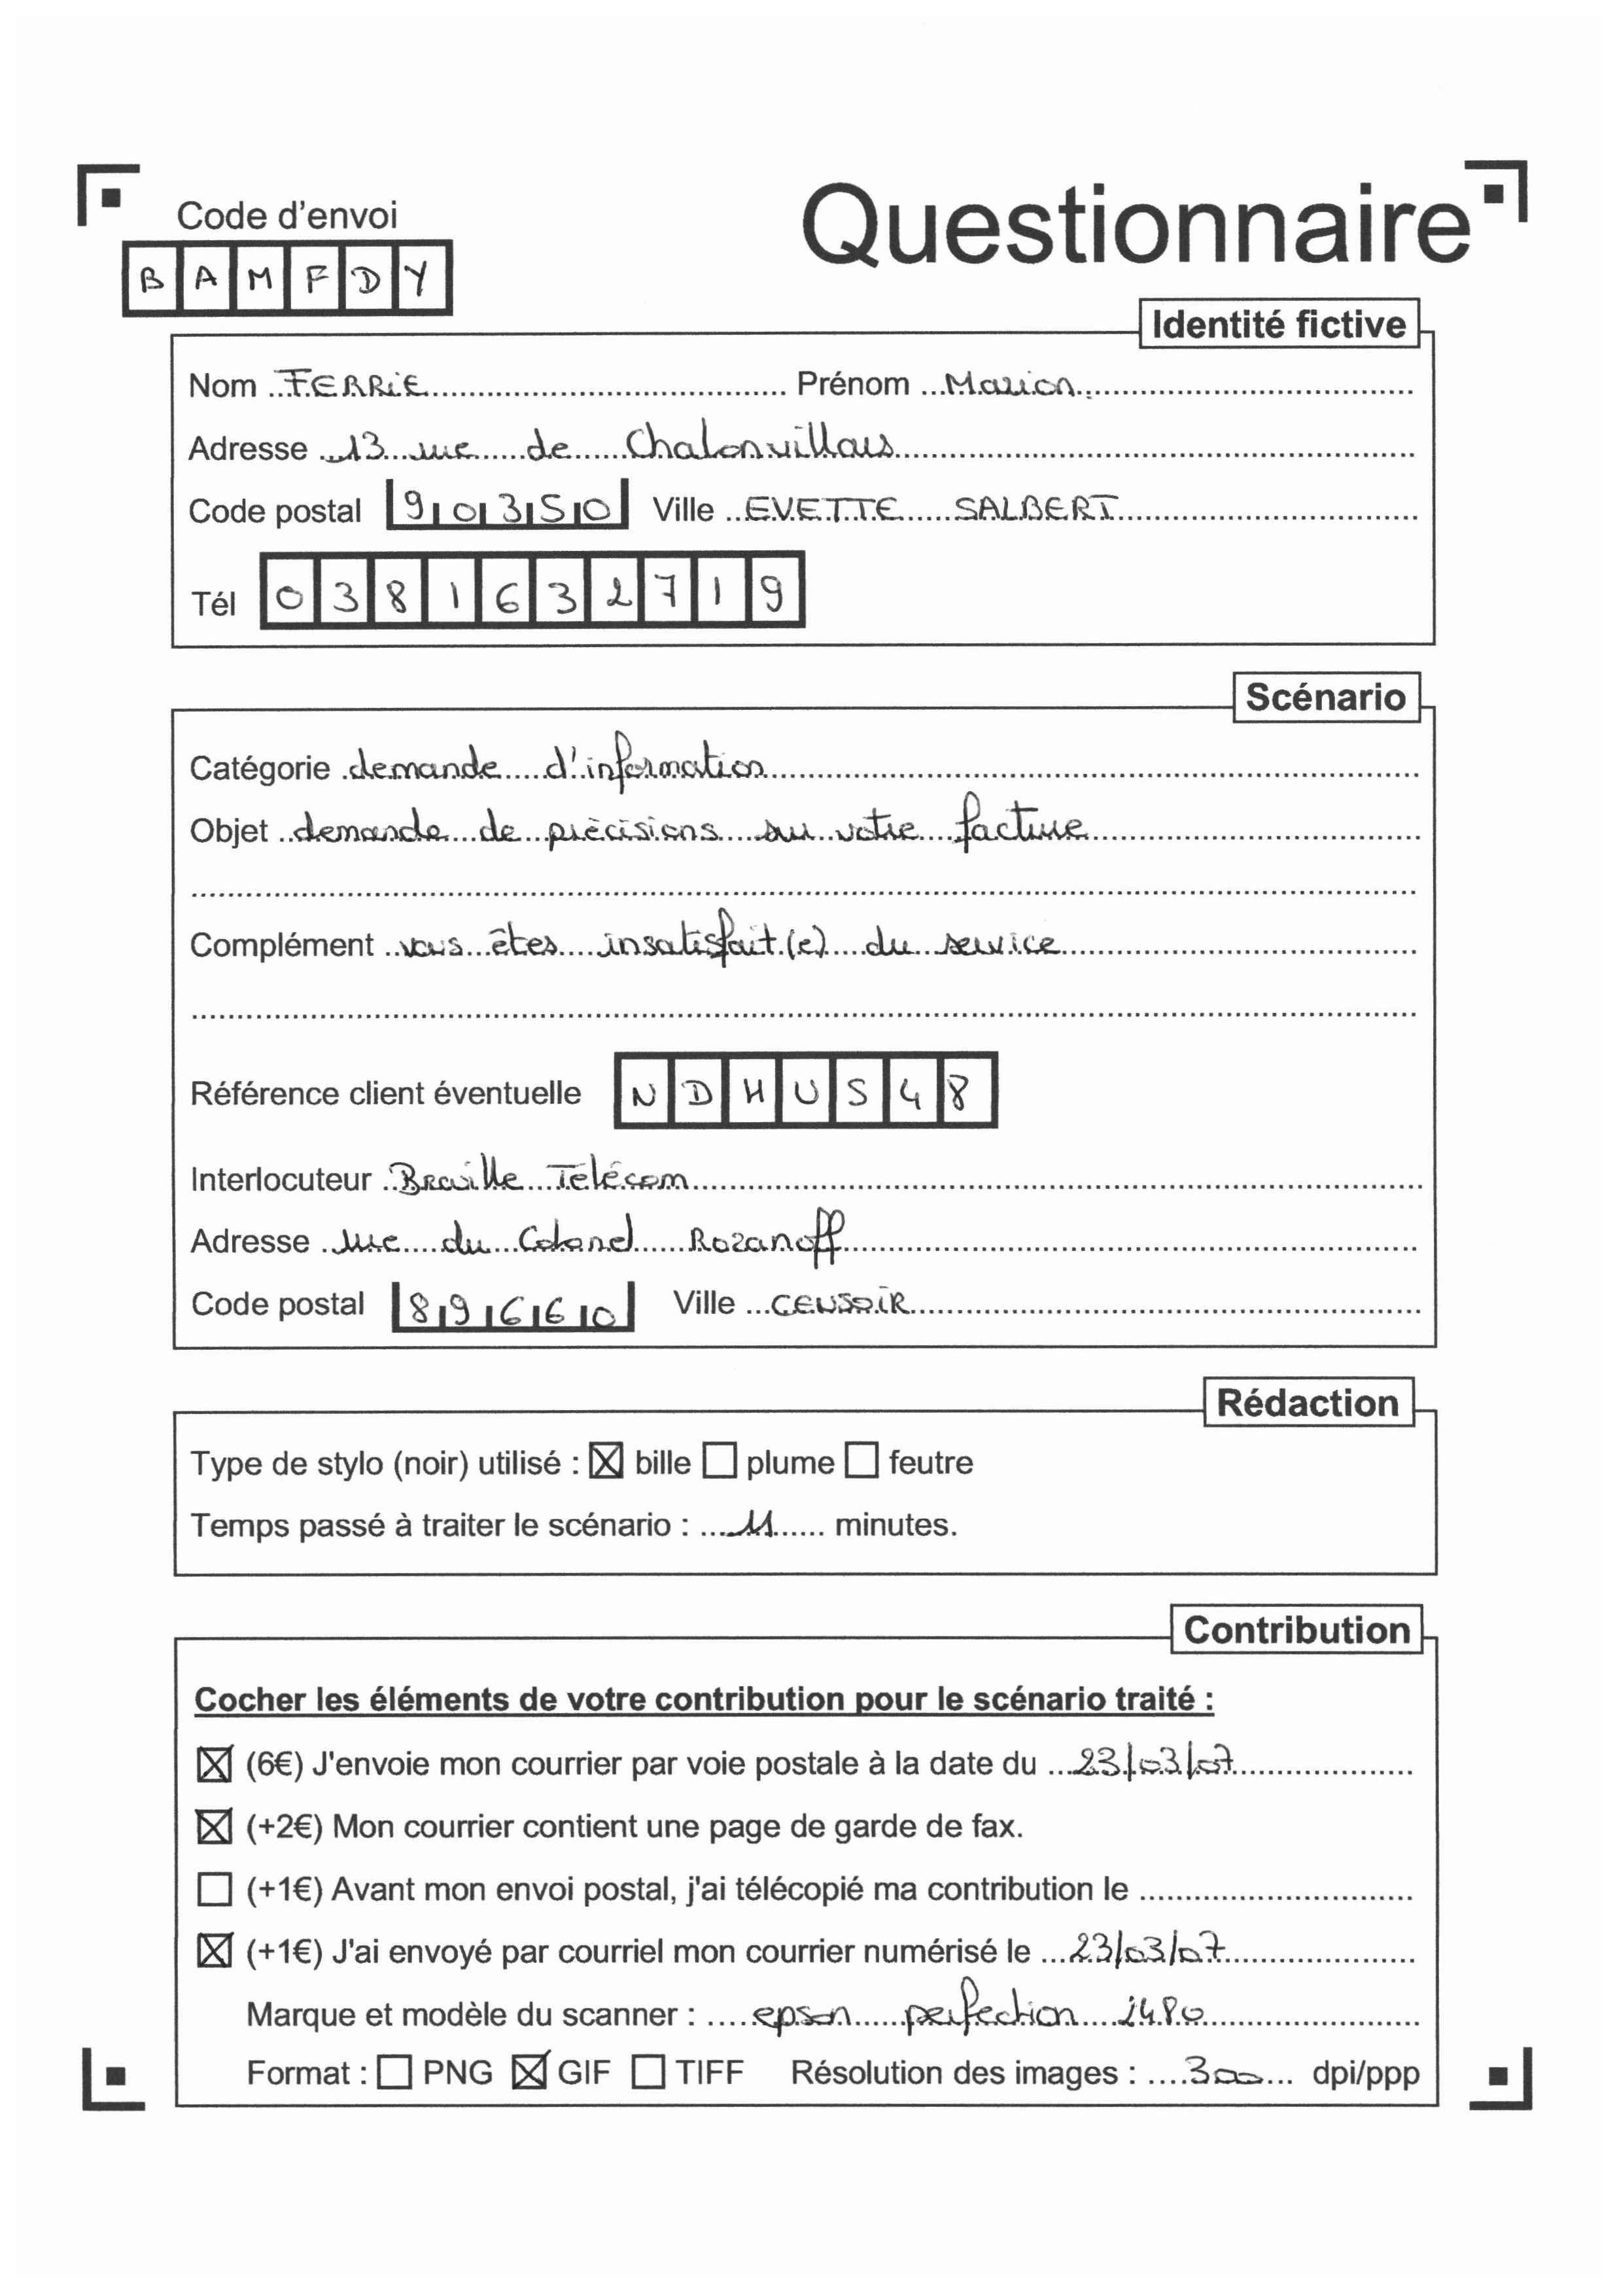 Questionnaire
Code d'envoi
BAMFDY
Identité fictive
Nom FERRIE Prénom Marion
Adresse 13 rue de Chalonvillars
Code postal 90350 Ville EVETTE SALBERT
Tél 0381632719
Scénario
Catégorie demande d'information
Objet demande de précisions sur votre facture
Complément vous êtes insatisfait(e) du service
Référence client éventuelle NDHUS48
Interlocuteur Braille Télécom
Adresse rue du Colonel Rozanoff
Code postal 89660 Ville
Rédaction
Type de stylo (noir) utilisé : ☒ bille ☐ plume ☐ feutre
Temps passé à traiter le scénario : 11 minutes.
Contribution
Cocher les éléments de votre contribution pour le scénario traité :
☒ (6€) J'envoie mon courrier par voie postale à la date du 23/03/07
☒ (+2€) Mon courrier contient une page de garde de fax.
☐ (+1€) Avant mon envoi postal, j'ai télécopié ma contribution le
☒ (+1€) J'ai envoyé par courriel mon courrier numérisé le 23/03/07
Marque et modèle du scanner : epson perfection 2480
Format : ☐ PNG ☒ GIF ☐ TIFF Résolution des images : 300 dpi/ppp